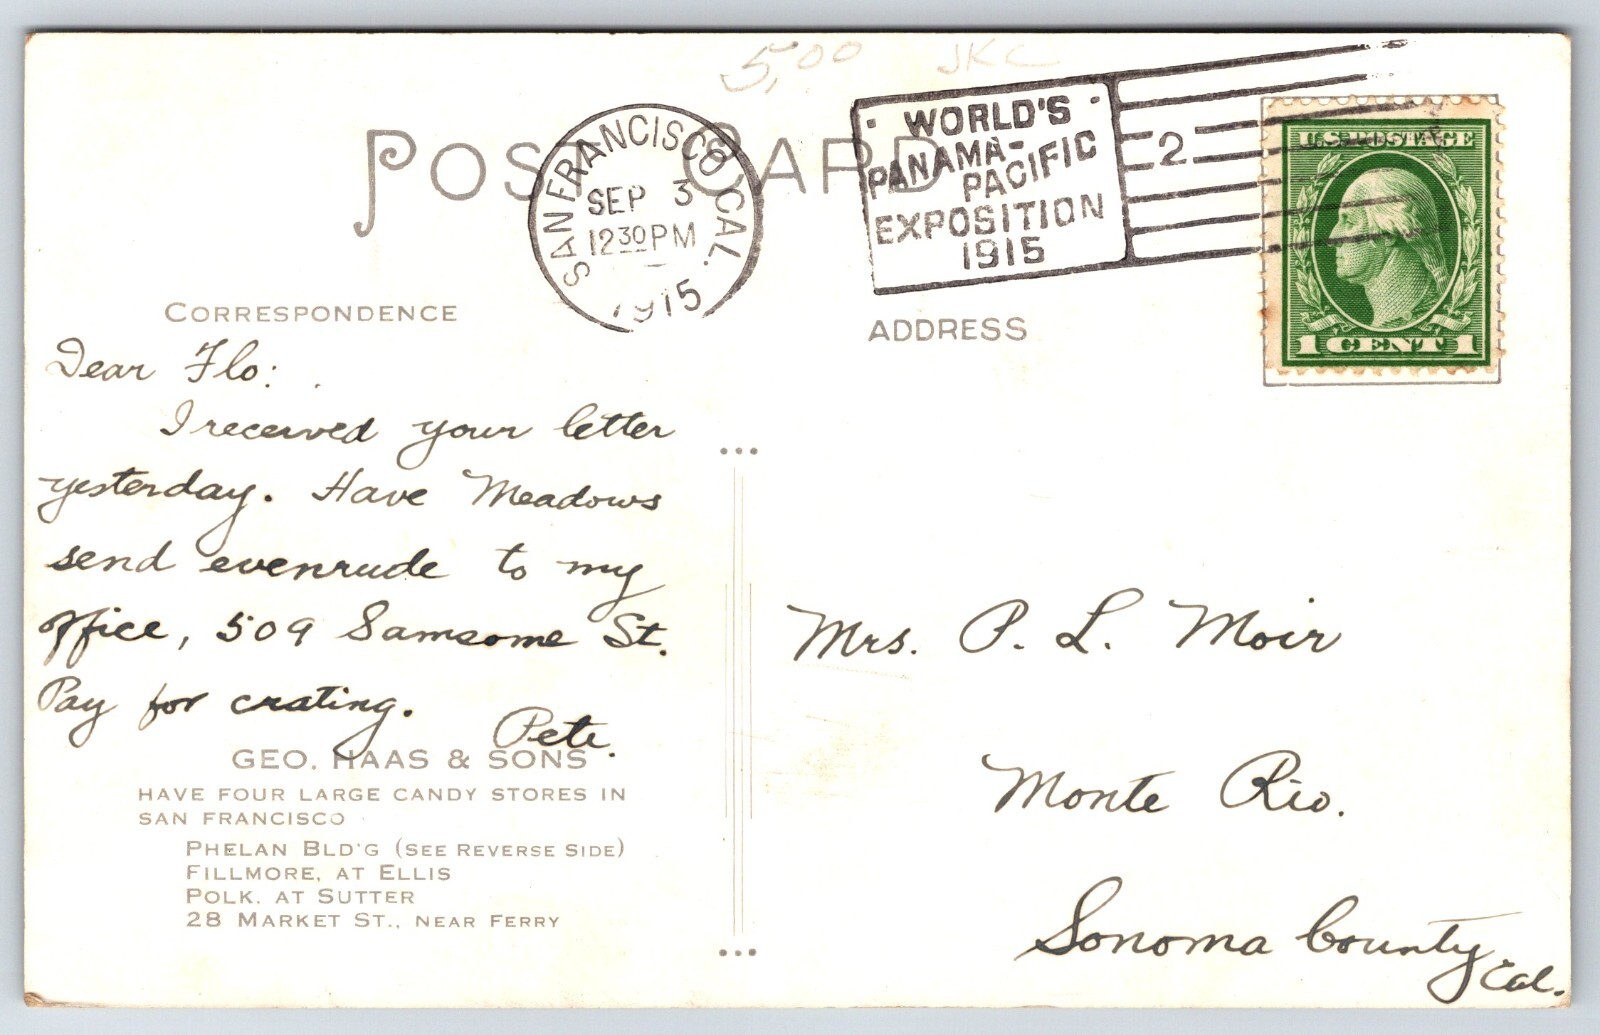 5,00 JKC
POST CARD
SAN FRANCISCO CAL.
SEP 3
12 30 PM
1915
WORLD'S
PANAMA-
PACIFIC
EXPOSITION
1915
2
U.S. POSTAGE
1 CENT 1
CORRESPONDENCE
ADDRESS
Dear Flo:
I received your letter
yesterday. Have Meadows
send evenrude to my
office, 509 Samsome St.
Pay for crating.
Pete.
GEO. HAAS & SONS
HAVE FOUR LARGE CANDY STORES IN
SAN FRANCISCO
PHELAN BLD'G (SEE REVERSE SIDE)
FILLMORE, AT ELLIS
POLK. AT SUTTER
28 MARKET ST., NEAR FERRY
Mrs. P. L. Moir
Monte Rio.
Sonoma County
Cal.